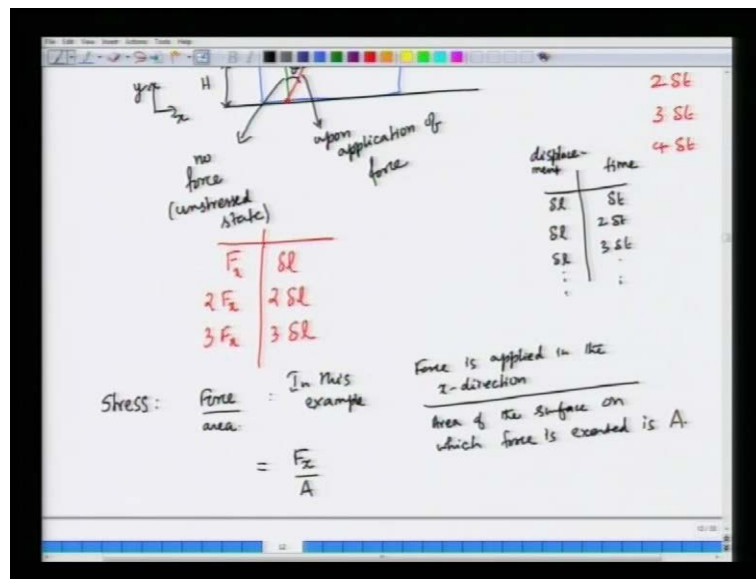 File Edit View Insert Actions Tools Help
H
y
x
θ
no
force
(unstressed
state)
upon
application of
force
2 δt
3 δt
4 δt
displace-
ment | time
δl | δt
δl | 2 δt
δl | 3 δt
⋮ | ⋮
Fx | δl
2 Fx | 2 δl
3 Fx | 3 δl
Stress: Force / area = In this example
Force is applied in the
x-direction
Area of the surface on
which force is exerted is A.
= Fx / A
12